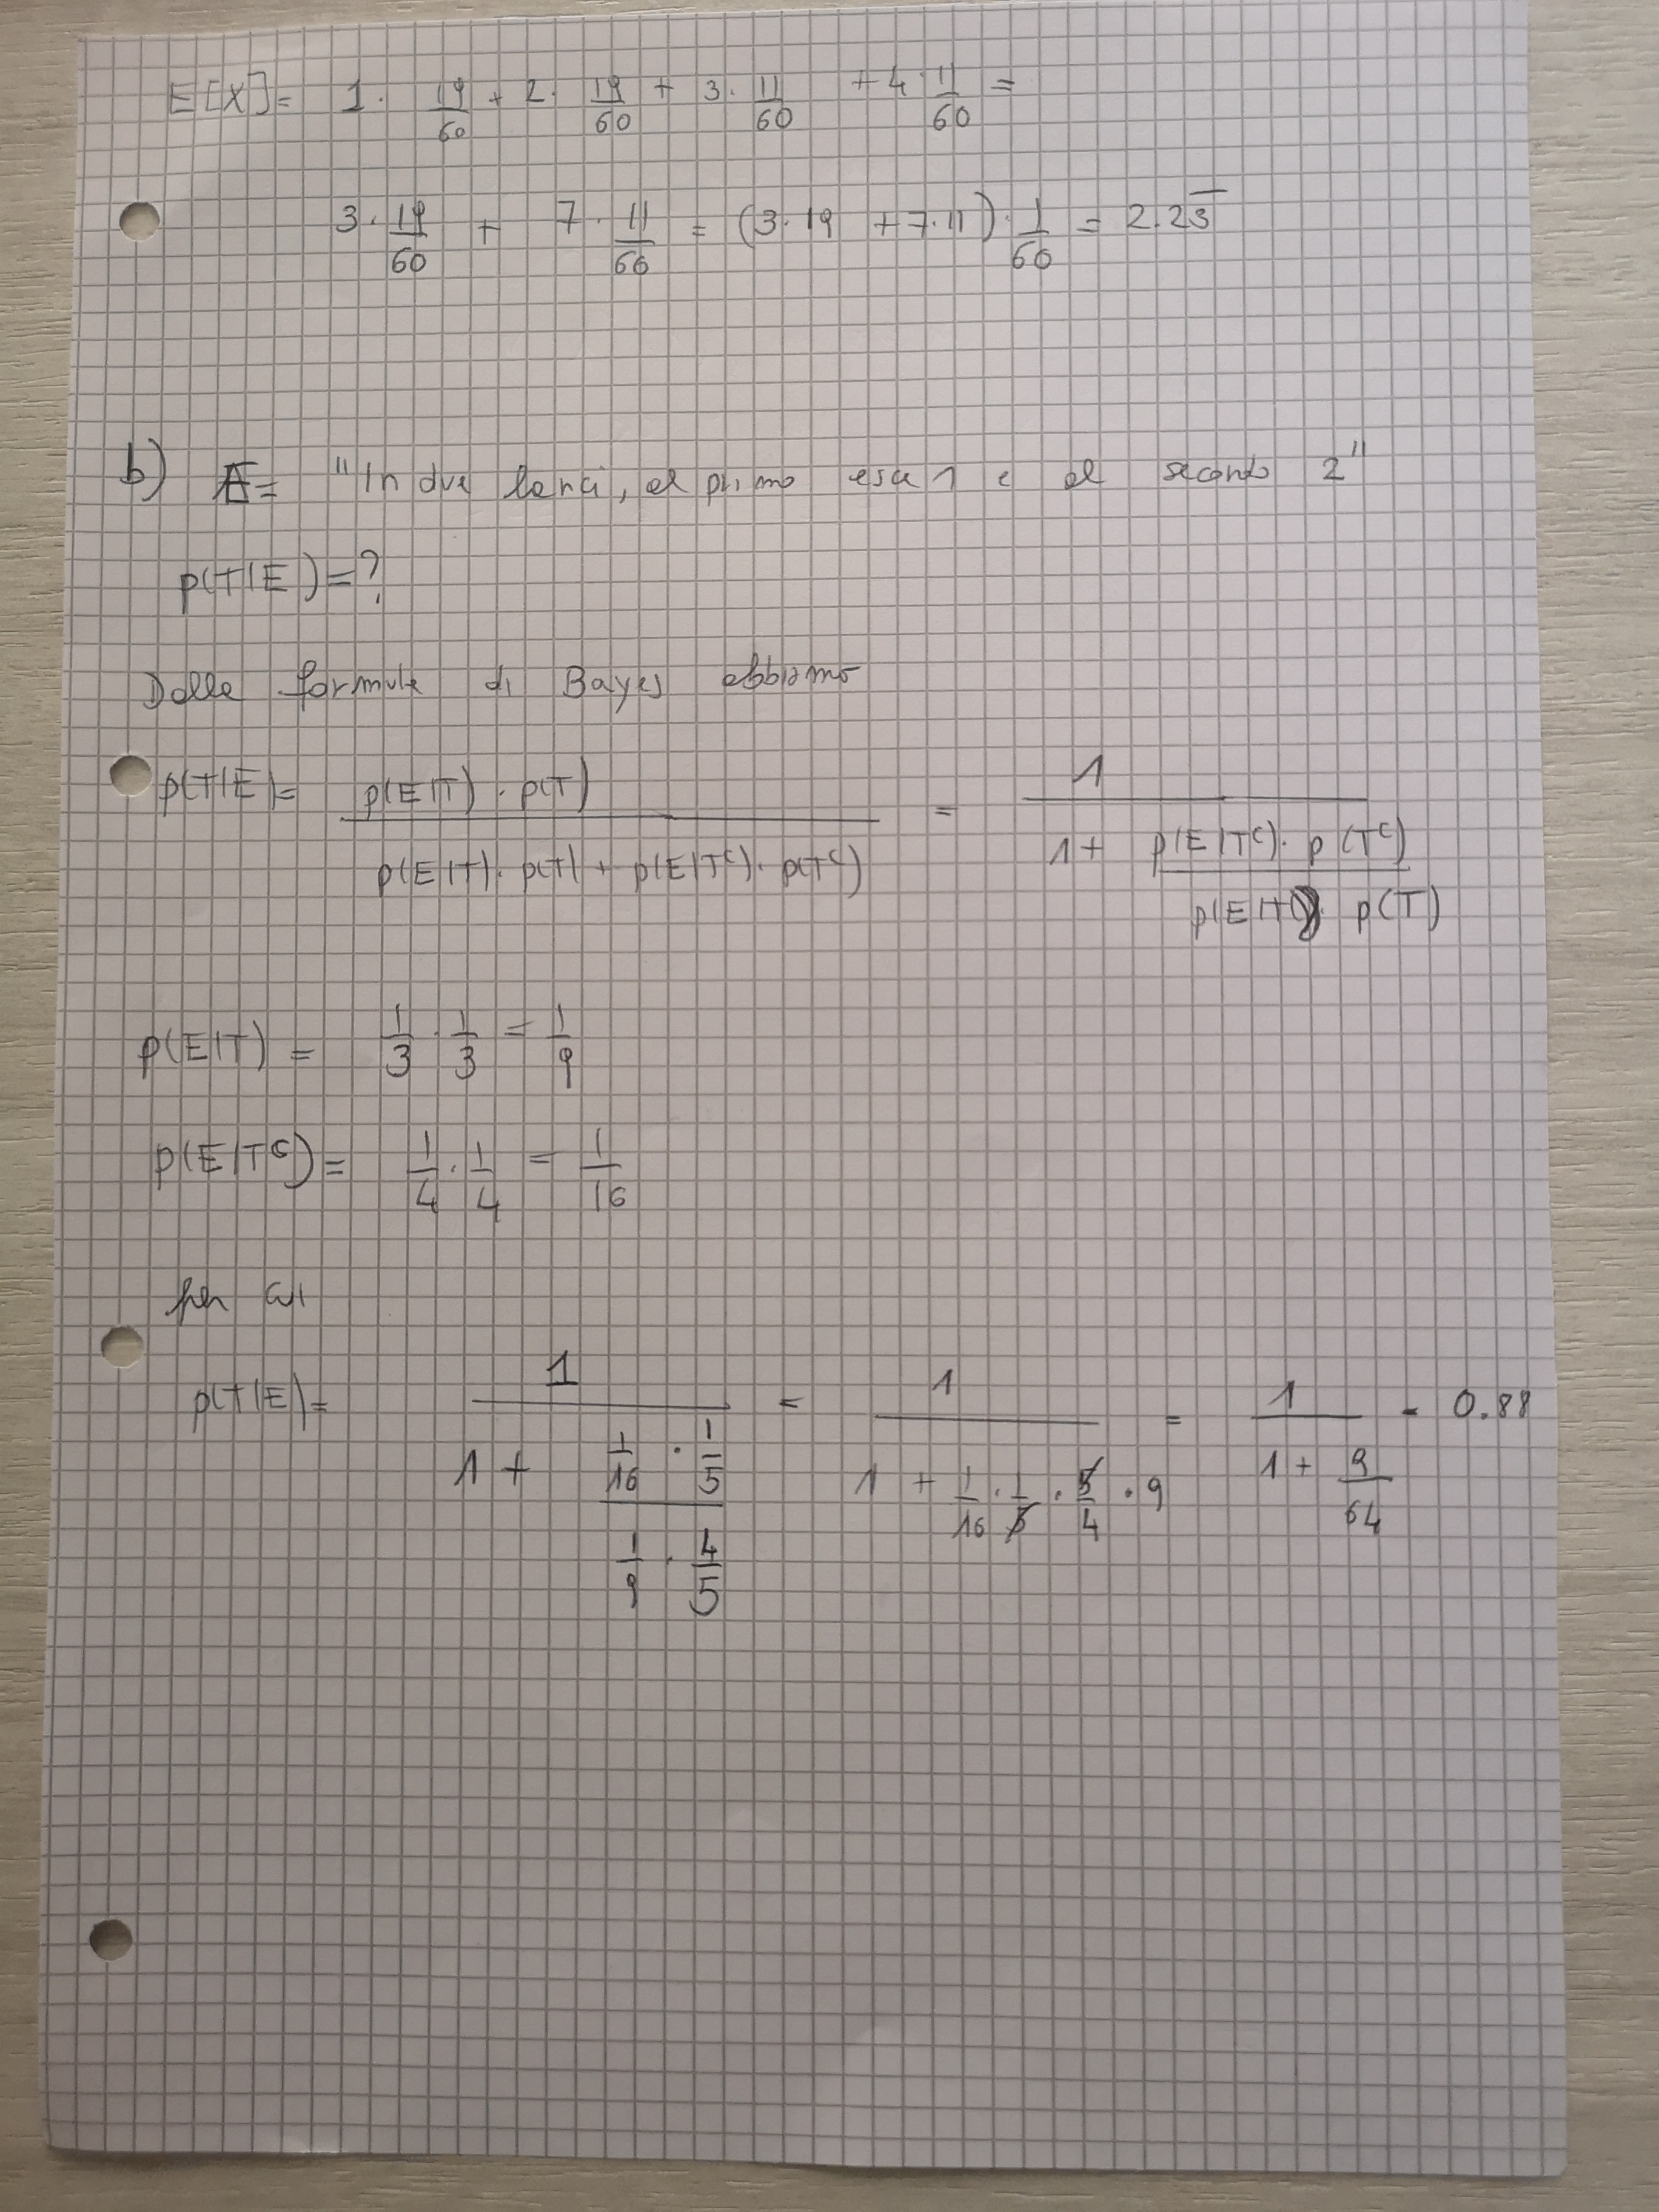 E[X]= 1· 19/60 + 2· 19/60 + 3· 11/60 + 4· 11/60 =
3· 19/60 + 7· 11/60 = (3·19 +7·11)· 1/60 = 2.23̅
b) E= "In due lanci, al primo esce 1 e al secondo 2"
p(T|E)=?
Dalla formula di Bayes abbiamo
p(T|E)= p(E|T)· p(T) / p(E|T)· p(T) + p(E|Tᶜ)· p(Tᶜ) = 1 / 1+ p(E|Tᶜ)· p(Tᶜ) / p(E|T)· p(T)
p(E|T) = 1/3 · 1/3 = 1/9
p(E|Tᶜ)= 1/4 · 1/4 = 1/16
per cui
p(T|E)= 1 / 1 + 1/16 · 1/5 / 1/9 · 4/5 = 1 / 1 + 1/16 · 1/5 · 5/4 · 9 = 1 / 1 + 9/64 = 0.88